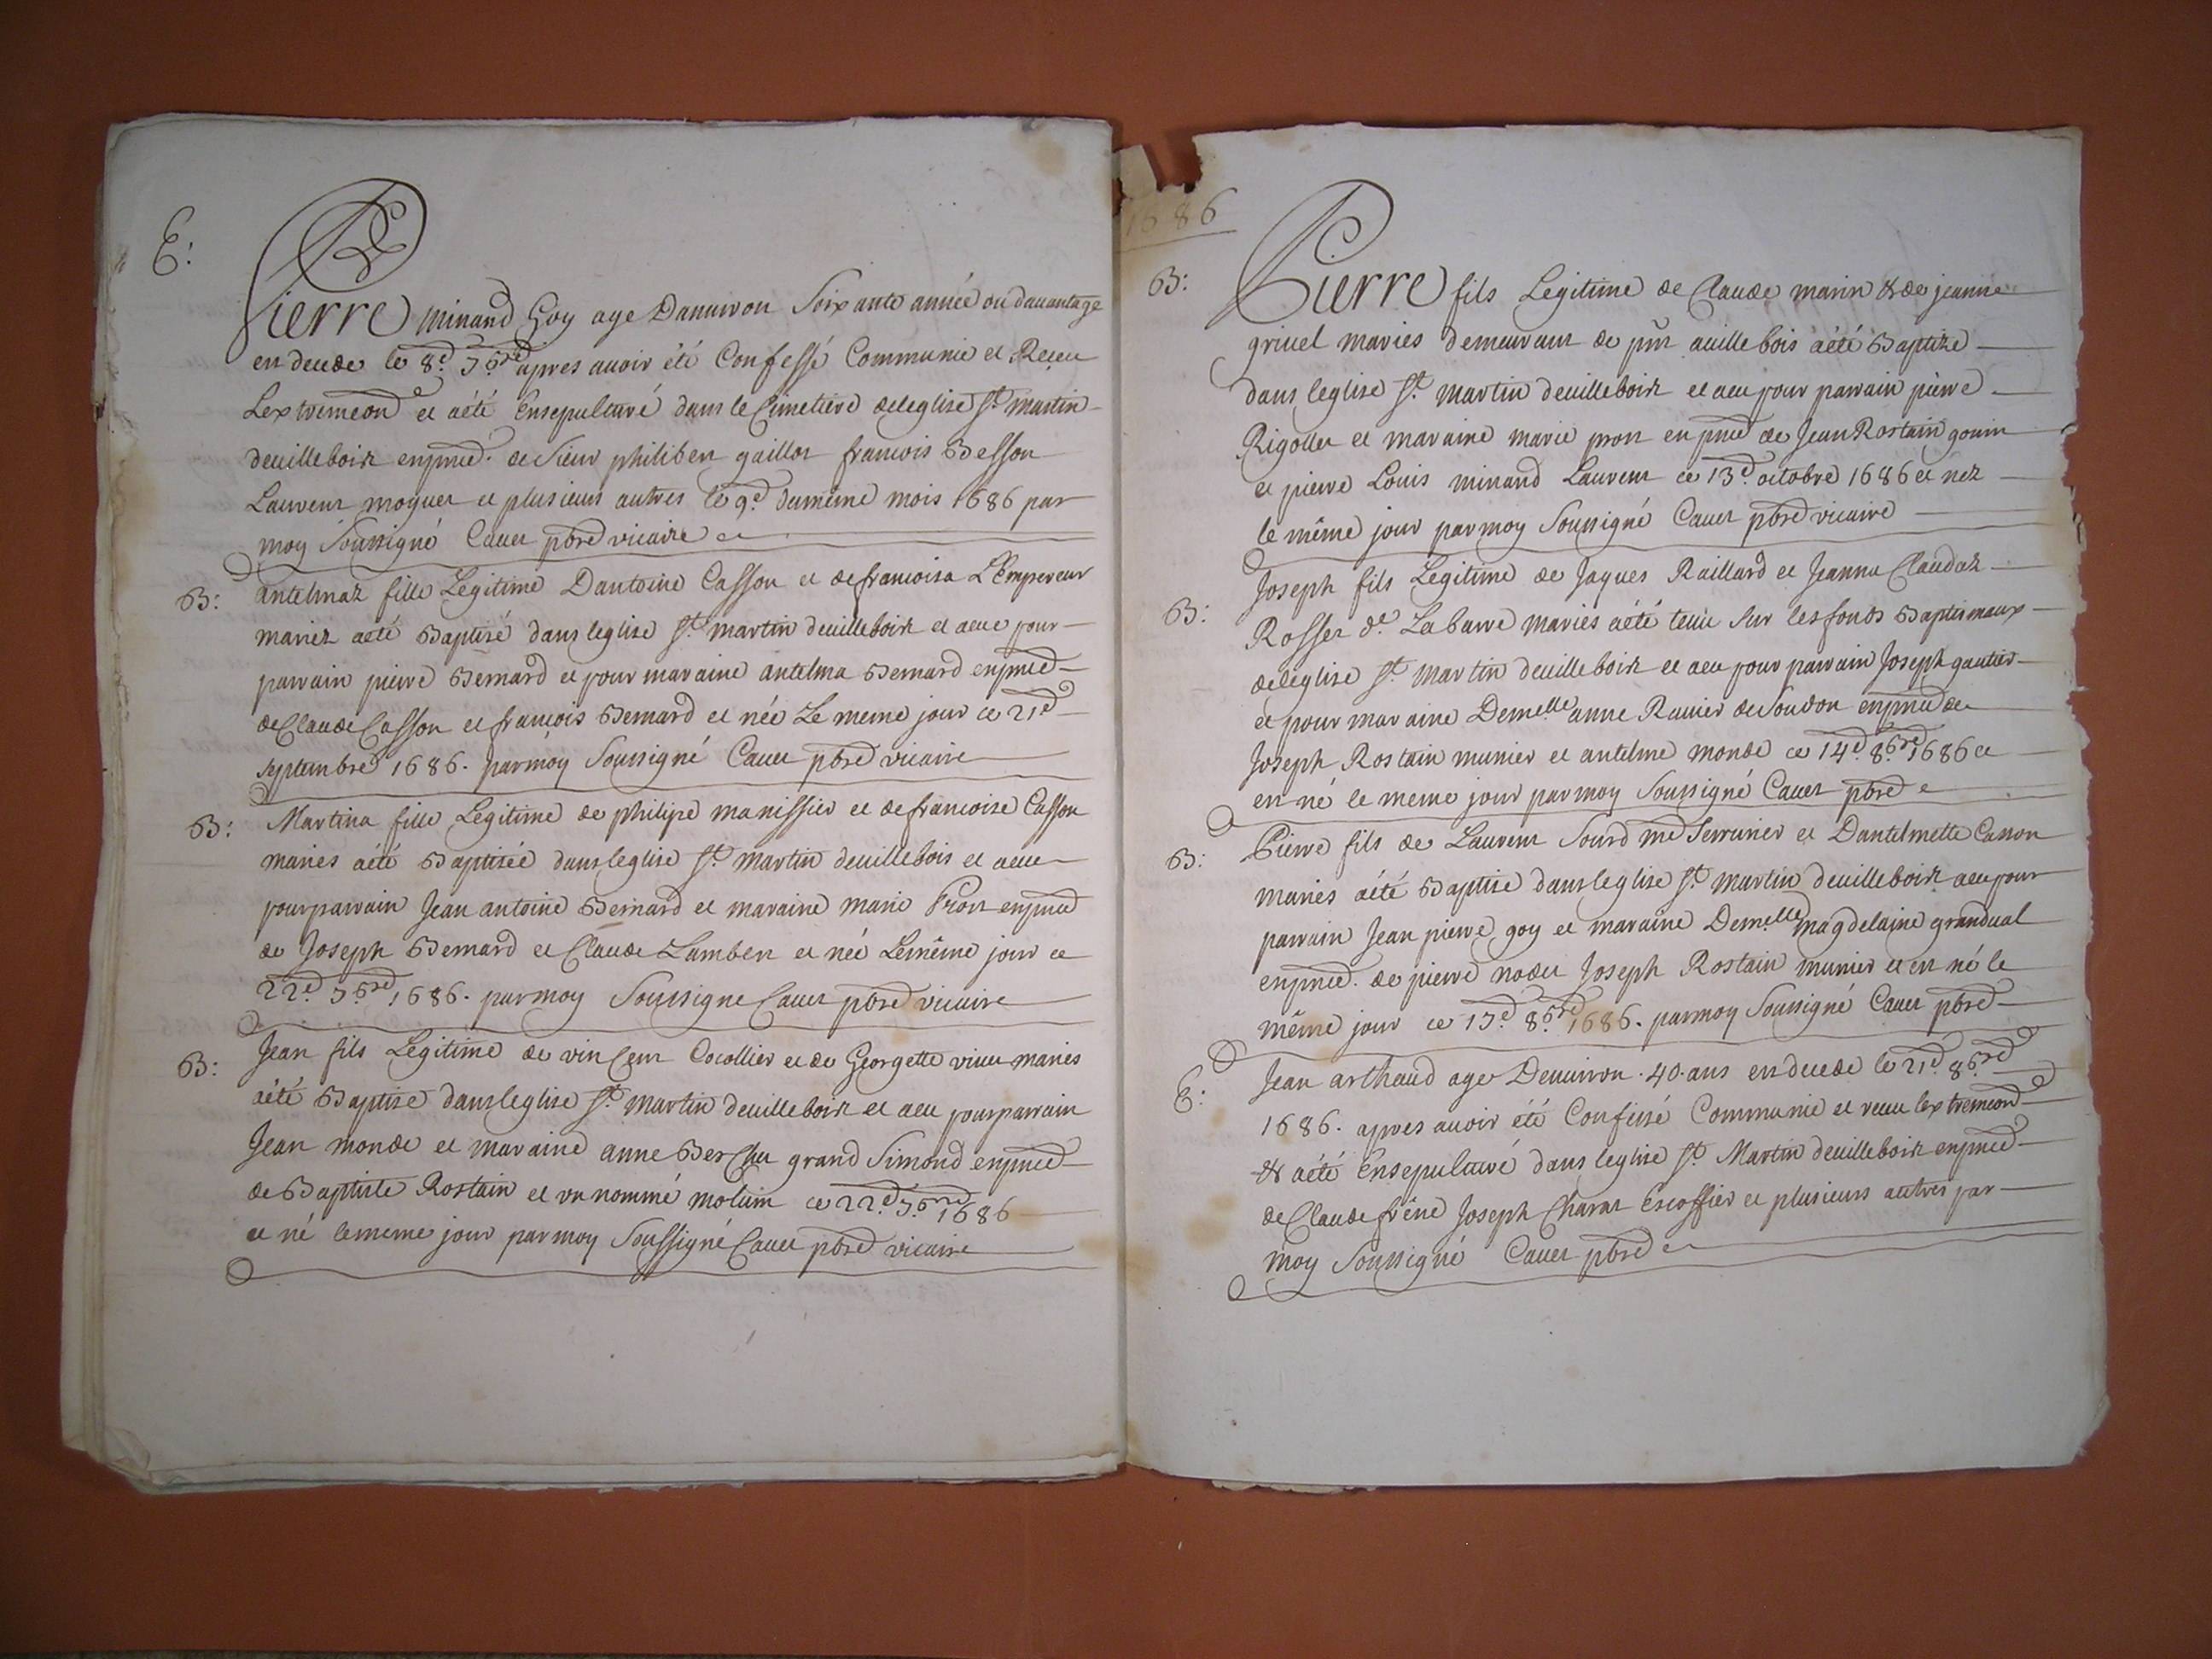 E:
Pierre minand Goy age Danuiron Soixante année ou dauantage
en decede le 8e 7bre apres auoir été Confessé Communie et Receu
Lextremeon et aété Ensepulturé dans le Cimetiere deleglise St martin
deuilleboix enpnce de Sieur philibert gaillot francois Besson
Laurent moquet et plusieurs autres le 9e dumême mois 1686 par
moy Soussigné Cauet pbre vicaire
B: antelmaz fille Legitime Dantoine Casson et defrancoisa L'Empereur
mariez aeté Baptisé dans leglise St martin deuilleboix et aeue pour
parrain pierre Bernard et pour maraine antelma Bernard enpnce
deClaude Casson et francois Bernard et née Le meme jour ce 21e
septembre 1686. parmoy Soussigné Cauet pbre vicaire
B: Martina fille Legitime de philipe manissier et defrancoise Casson
maries aété Baptisée dans leglise St martin deuillebois et aeue
pourparrain Jean antoine Bernard et maraine marie Pron enpnce
de Joseph Bernard et Claude Lambert et née Lemême jour ce
22e 7bre 1686. parmoy Soussigne Cauet pbre vicaire
B: Jean fils Legitime de vincent Cocollier et de Georgette viuet maries
aété Baptise dans leglise St martin deuilleboix et aeu pourparrain
Jean monde et maraine anne Berchu grand Simond enpnce
de Baptiste Rostain et vn nommé molum ce 22e 7bre 1686
et né lememe jour par moy Soussigné Cauet pbre vicaire
1686
B: Pierre fils Legitime de Claude marin & de jeanne
griuel maries demeurant de pnt auillebois aété Baptize
dans leglise St martin deuilleboix et aeu pour parrain pierre
Rigollet et maraine marie pron en pnce de Jean Rostain gouin
et pierre Louis minand Laurent ce 13e octobre 1686 et nez
le même jour par moy Soussigné Cauet pbre vicaire
B: Joseph fils Legitime de Jaques Raillard et Jeanna Claudaz
Rosset de Labarre maries aété tenu Sur les fonds Baptismaux
deleglise St martin deuilleboix et aeu pour parrain Joseph gautier
et pour maraine Demelle anne Rauier de Soudon enpnce de
Joseph Rostain munier et antelme monde ce 14e 8bre 1686 et
en né le meme jour par moy Soussigné Cauet pbre
B: Pierre fils de Laurent Sourd me Serrurier et Dantelmette Casson
maries aété Baptise dans leglise St martin deuilleboix aeu pour
parrain Jean pierre goy et maraine Demelle magdelaine grandual
enpnce de pierre nodet Joseph Rostain munier et en né le
même jour ce 17e 8bre 1686. parmoy Soussigné Cauet pbre
E: Jean arthaud age Deuiron 40 ans en decede le 21e 8bre
1686. apres auoir été Confessé Communie et receu lextremeon
& aété Ensepulturé dans leglise St Martin deuilleboix enpnce
de Claude frêne Joseph Charat Escoffier et plusieurs autres par
moy Soussigné Cauet pbre